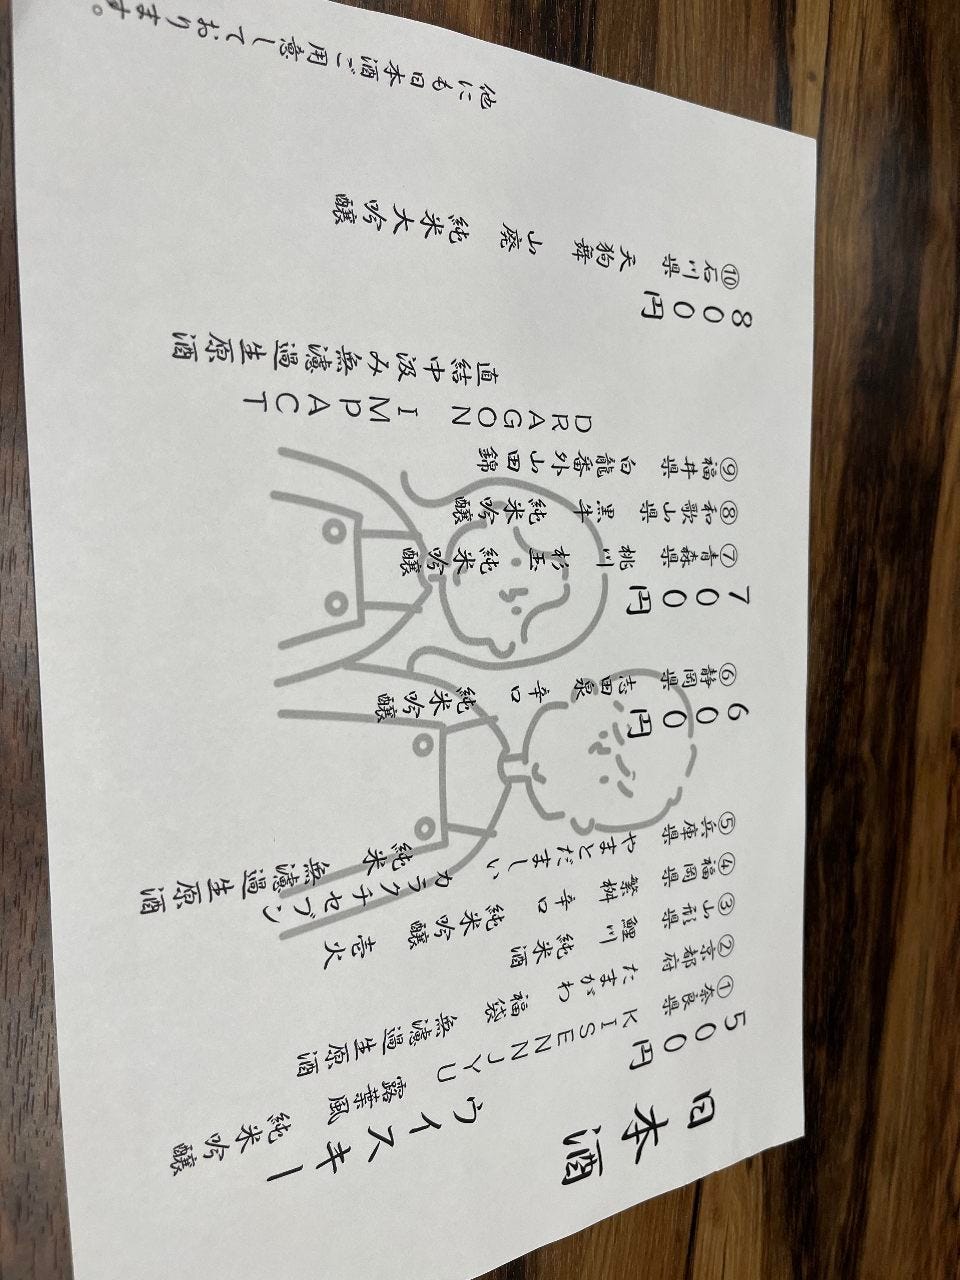 日本酒
５００円
ウイスキー
① 奈良県 KISENJYU 露葉風 純米吟醸
② 京都府 たまがわ 福袋 無濾過生原酒
③ 山形県 鯉川 純米酒
④ 福岡県 繁桝 辛口 純米吟醸 壱火
⑤ 兵庫県 やまとだましい カラクチセブン
純米 無濾過生原酒
６００円
⑥ 静岡県 志田泉 辛口 純米吟醸
７００円
⑦ 青森県 桃川 杉玉 純米吟醸
⑧ 和歌山県 黒牛 純米吟醸
⑨ 福井県 白龍 番外 山田錦
DRAGON IMpACT
直結中汲み無濾過生原酒
８００円
⑩ 石川県 天狗舞 山廃 純米大吟醸
他にも日本酒ご用意しております。